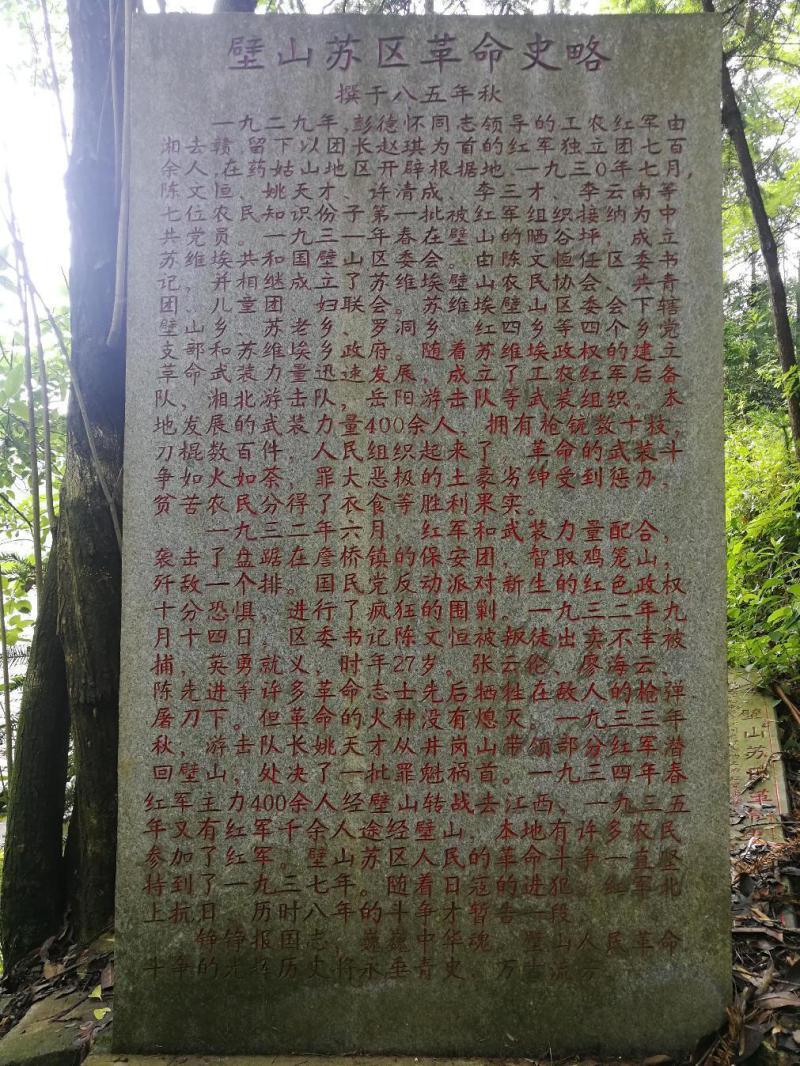 壁山苏区革命史略
撰于八五年秋
一九二九年,彭德怀同志领导的工农红军由
湘去赣,留下以团长赵琪为首的红军独立团七百
余人,在药姑山地区开辟根据地、一九三0年七月,
陈文恒、姚天才、许清成、李三才、李云南等
七位农民知识份子第一批被红军组织接纳为中
共党员。一九三一年春在壁山的晒谷坪,成立
苏维埃共和国壁山区委会。由陈文恒任区委书
记,并相继成立了苏维埃壁山农民协会、共青
团、儿童团 妇联会。苏维埃壁山区委会下辖
壁山乡、苏老乡、罗洞乡、红四乡等四个乡党
支部和苏维埃乡政府。随着苏维埃政权的建立
革命武装力量迅速发展,成立了工农红军后备
队,湘北游击队,岳阳游击队等武装组织。本
地发展的武装力量400余人,拥有枪铳数十枝,
刀棍数百件。人民组织起来了 革命的武装斗
争如火如荼,罪大恶极的土豪劣绅受到惩办、
贫苦农民分得了衣食等胜利果实。
一九三二年六月,红军和武装力量配合,
袭击了盘踞在詹桥镇的保安团,智取鸡笼山,
歼敌一个排。国民党反动派对新生的红色政权
十分恐惧,进行了疯狂的围剿,一九三二年九
月十四日,区委书记陈文恒被叛徒出卖不幸被
捕,英勇就义、时年27岁。张云伦、廖海云、
陈先进等许多革命志士先后牺牲在敌人的枪弹
屠刀下。但革命的火种没有熄灭,一九三三年
秋,游击队长姚天才从井岗山带领部分红军潜
回壁山,处决了一批罪魁祸首。一九三四年春
红军主力400余人经壁山转战去江西、一九三五
年又有红军千余人途经壁山,本地有许多农民
参加了红军。壁山苏区人民的革命斗争一直坚
持到了一九三七年。随着日寇的进犯,红军北
上抗日,历时八年的斗争才暂告一段,
铮铮报国志,巍巍中华魂,壁山人民革命
斗争的光辉历史将永垂青史、万古流芳
壁山苏区革